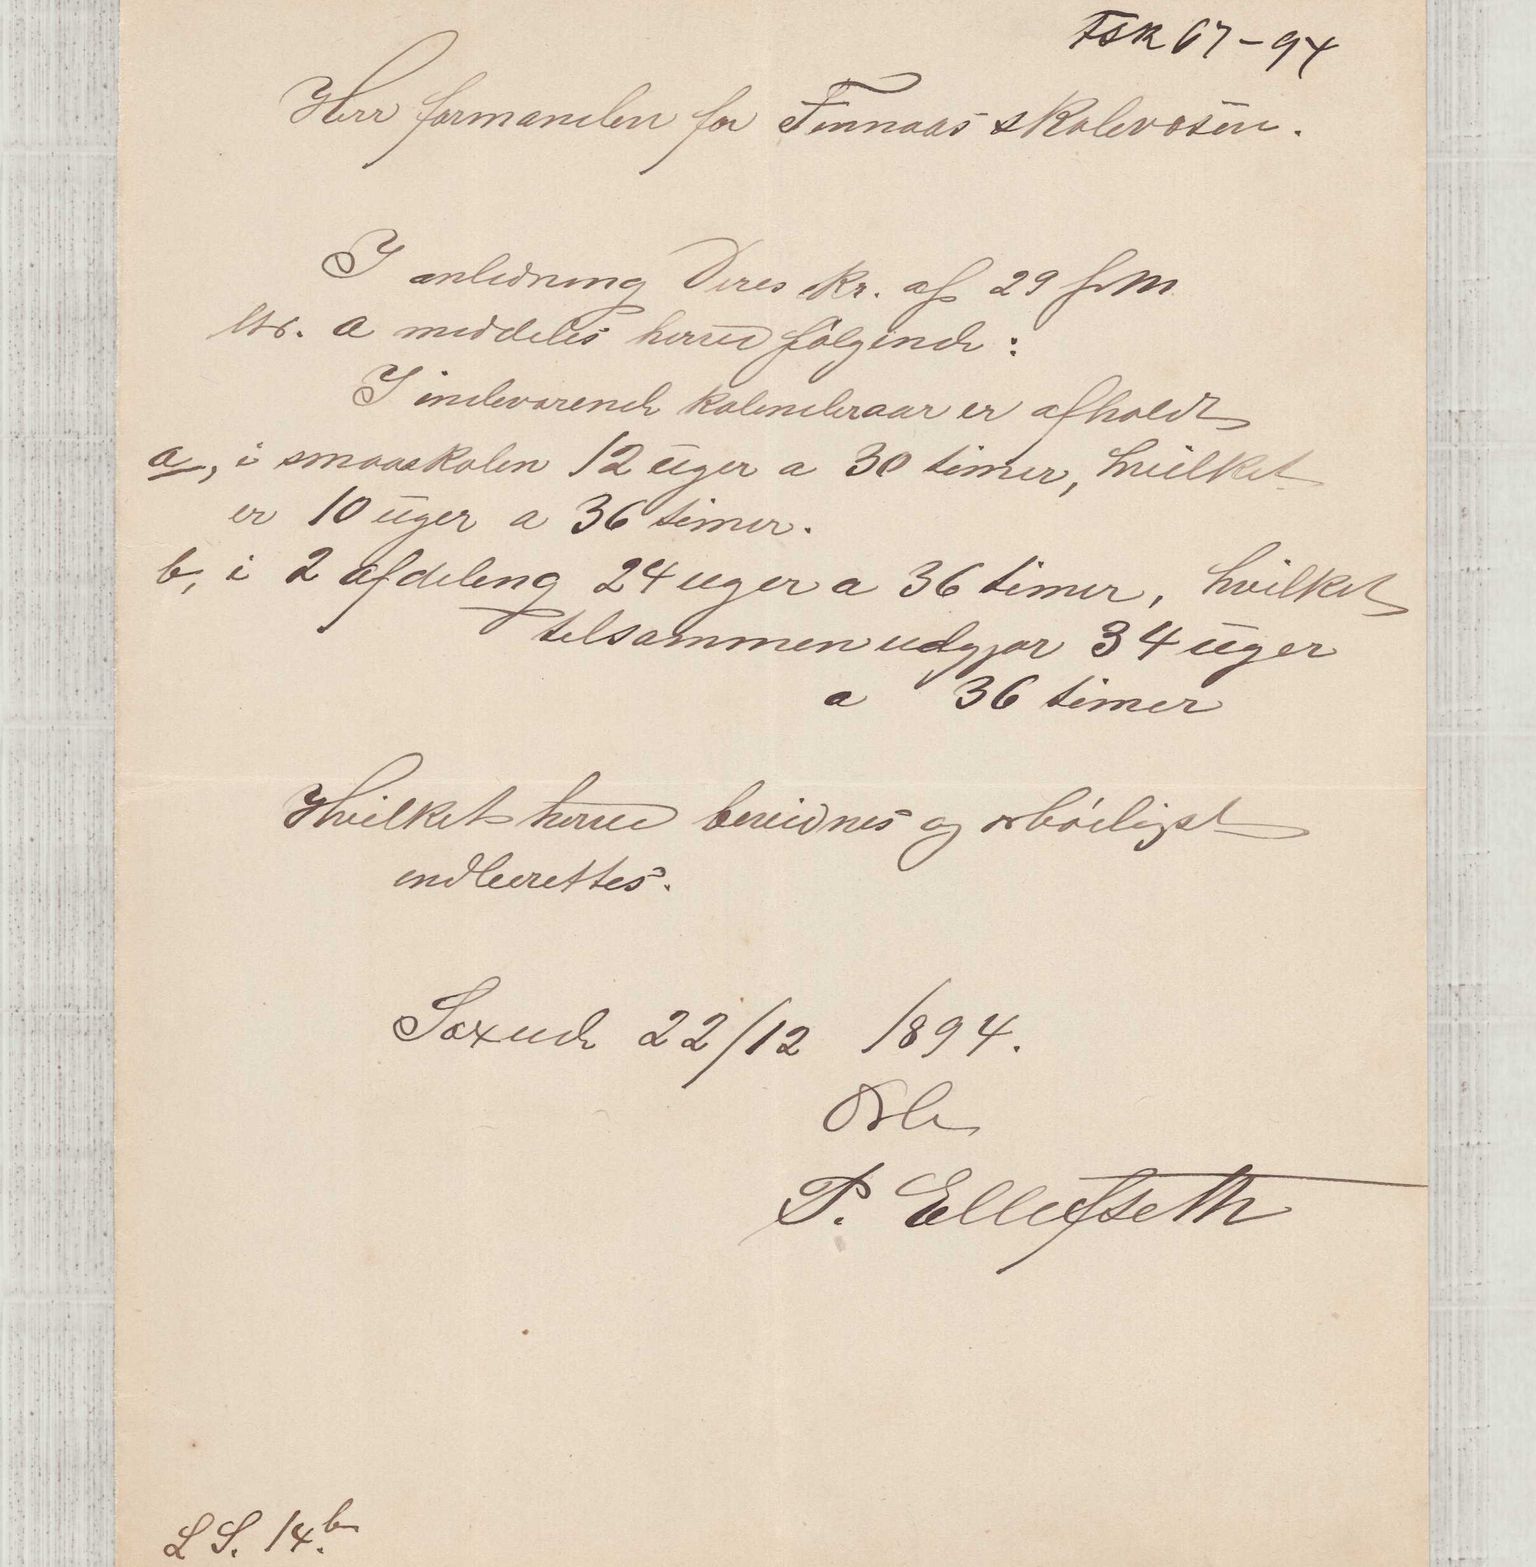 FSK 67-94
Herr formanden for Finnaas skolevæsen.
I anledning Deres skr. af 29 f. M
ltr. a meddeles herved følgende:
I indeværende kalenderaar er afholdt
a, i smaaskolen 12 uger a 30 timer, hvilket
er 10 uger a 36 timer.
b, i 2 afdeling 24 uger a 36 timer, hvilket
tilsammen udgjør 34 uger
a 36 timer
Hvilket herved bevidnes og ærbødigst
indberettes.
22/12 1894.
Ærb.
P. Ellefseth
L S. 14 b.